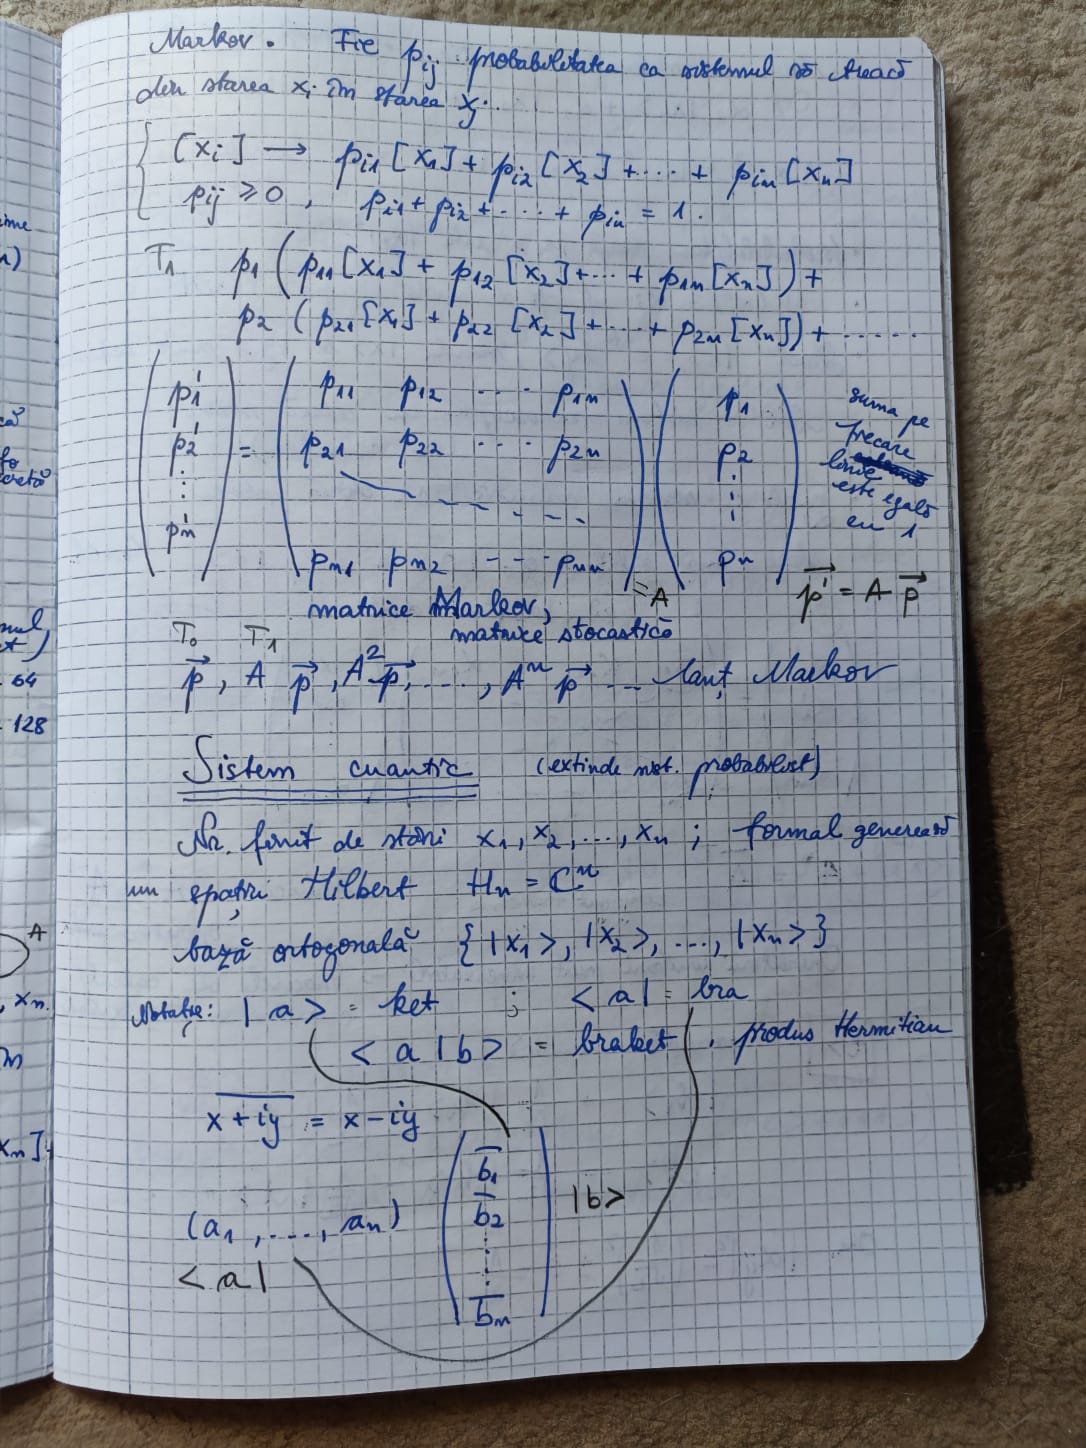 Markov. Fie pij probabilitatea ca sistemul să treacă
din starea xi în starea xj.
[xi] → pi1 [x1] + pi2 [x2] + .... + pin [xn]
pij ⩾ 0 , pi1 + pi2 + .... + pin = 1.
T1 p1 ( p11 [x1] + p12 [x2] + ... + p1n [xn] ) +
p2 ( p21 [x1] + p22 [x2] + ... + p2n [xn] ) + ......
p1' p11 p12 ... p1n p1 suma pe
p2' = p21 p22 ... p2n p2 fiecare
linie
este egală
pn' cu 1
pn1 pn2 --- pnn pn
= A p' = A p
matrice Markov,
matrice stocastică
T0 T1
p, A p, A² p, ...., Aⁿ p ... lanț Markov
Sistem cuantic (extinde sist. probabilist)
Nr. finit de stări x1, x2, ..., xn ; formal generează
un spațiu Hilbert Hn = ℂⁿ
bază ortogonală { |x1>, |x2>, ..., |xn> }
Notație: | a > = ket ; < a | = bra
< a | b > = braket , produs Hermitian
x̅ ̅+̅ ̅i̅y̅ = x - iy
b̅1
b̅2 |b>
(a1 , ...., an)
< a |
b̅n
64
128
A
, xn.
xn]